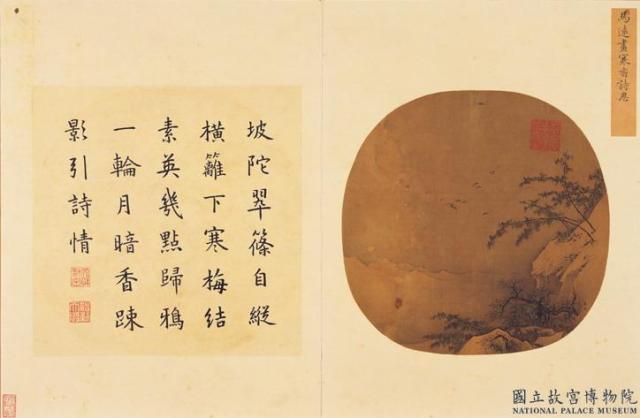 馬遠畫寒香詩思
坡陀翠篠自縱
橫籬下寒梅結
素英幾點歸鴉
一輪月暗香踈
影引詩情
國立故宮博物院
NATIONAL PALACE MUSEUM